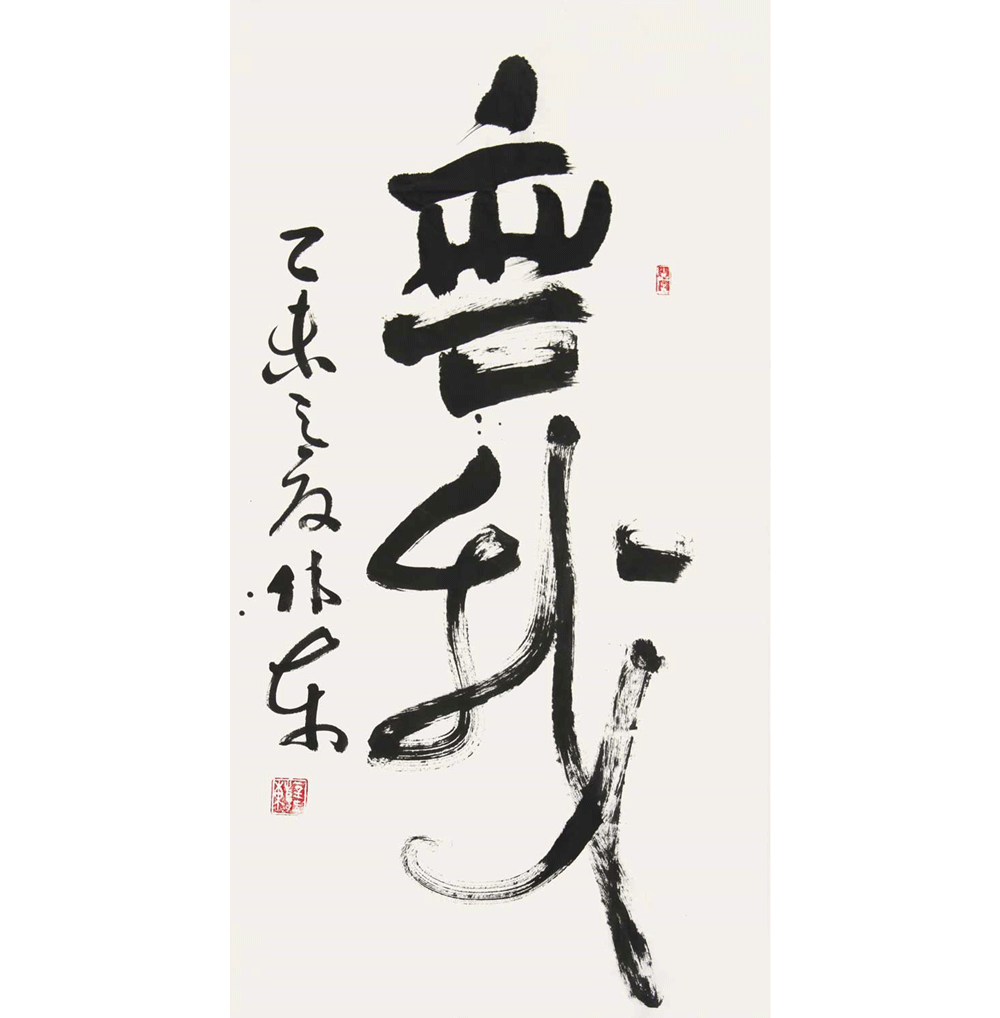 無我
乙未之夏伟东